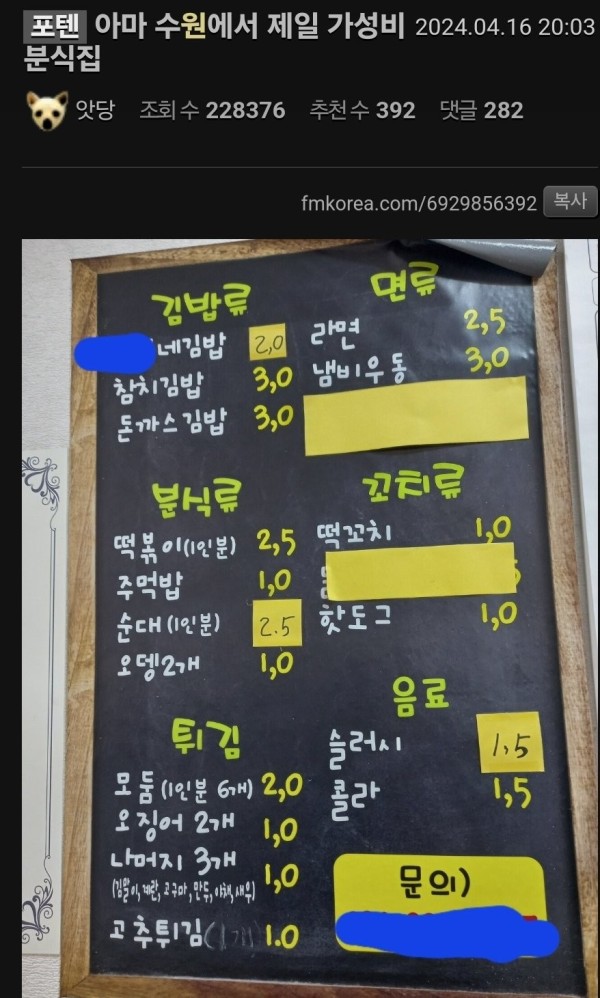 포텐 아마 수원에서 제일 가성비 분식집
2024.04.16 20:03
앗당 조회 수 228376 추천 수 392 댓글 282
fmkorea.com/6929856392 복사
김밥류
네김밥 2,0
참치김밥 3,0
돈까스김밥 3,0
면류
라면 2,5
냄비우동 3,0
분식류
떡볶이(1인분) 2,5
주먹밥 1,0
순대(1인분) 2.5
오뎅2개 1,0
꼬치류
떡꼬치 1,0
핫도그 1,0
튀김
모둠(1인분 6개) 2,0
오징어 2개 1,0
나머지 3개 1,0
(김말이, 계란, 고구마, 만두, 야채, 새우)
고추튀김(1개) 1.0
음료
슬러시 1,5
콜라 1,5
문의)